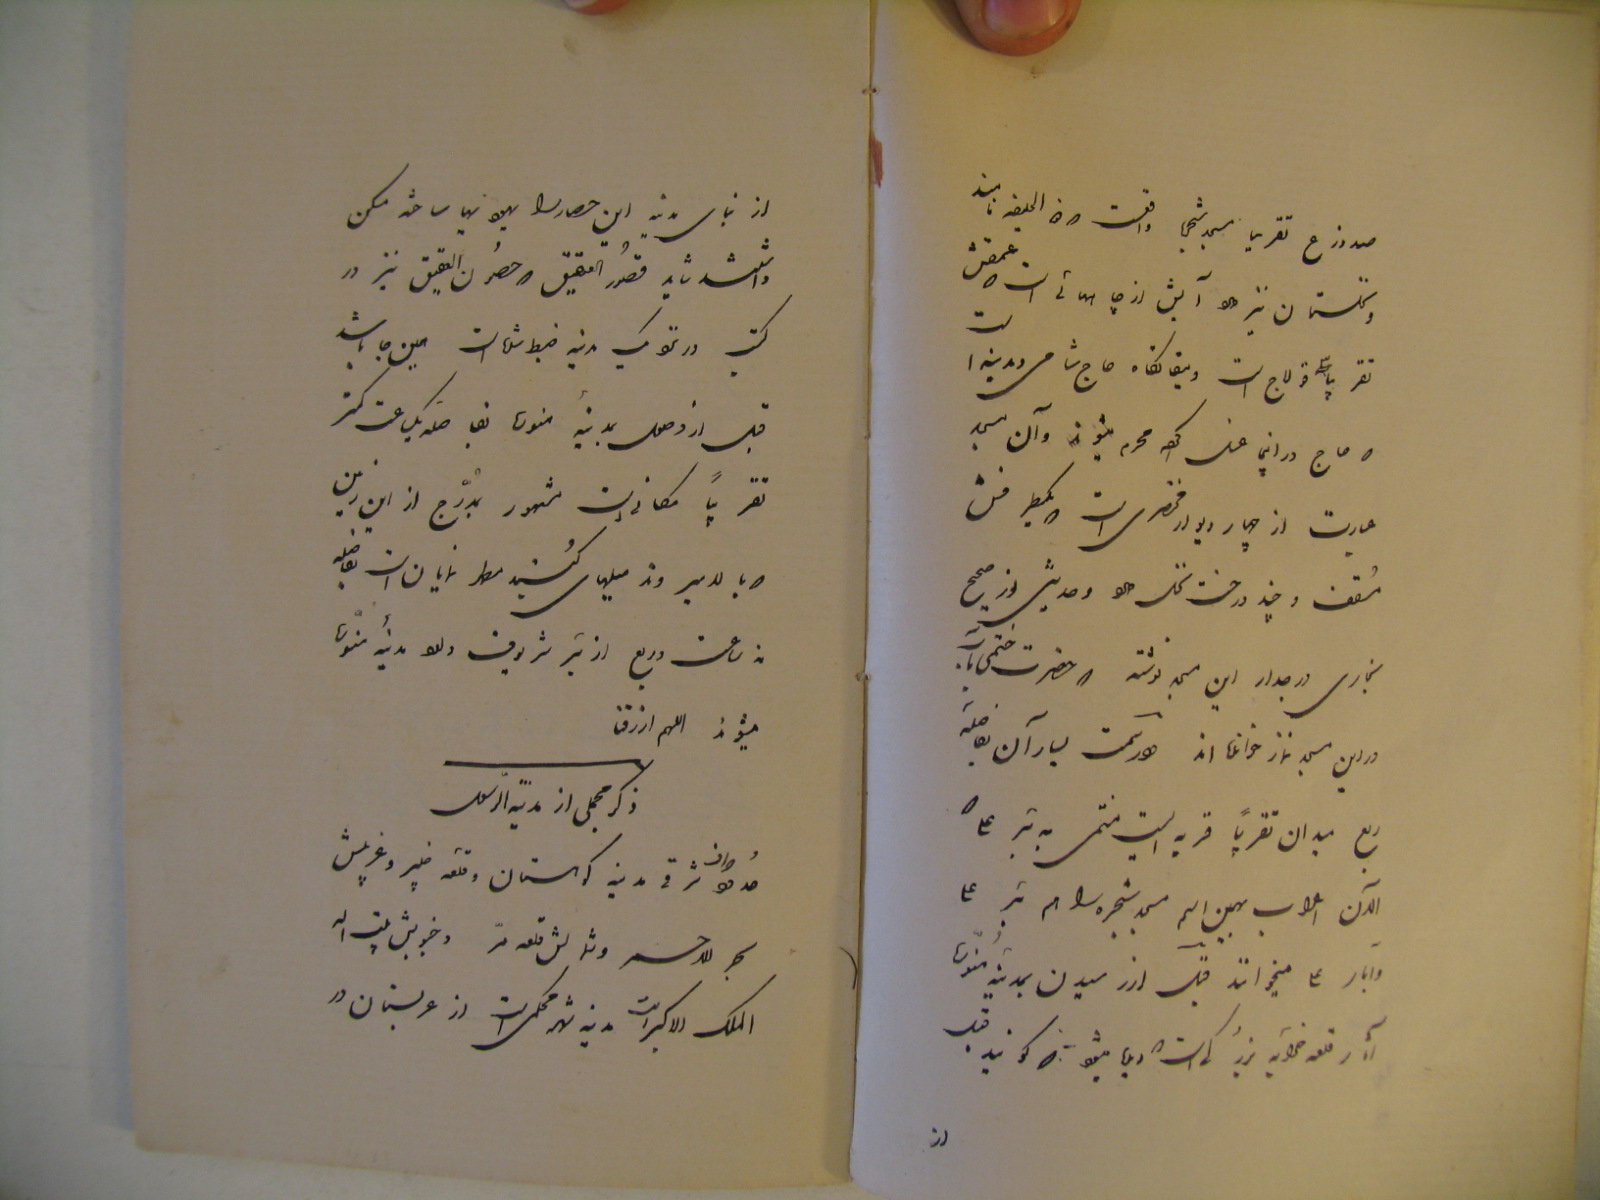 صد ذرع تقریبا مسجد شجرهٔ واقعست که ذو الحلیفه نامند
و نخلستان نیز دارد آبش از چاه هائی است که عمقش
تقریبا سه قولاج است و میقاتگاه حاج شامی و مدینه است
که حاج در اینجا غسل کرده محرم میشوند و آن مسجد
عبارت از چهار دیوار مختصری است که یکطرفش
مسقف و چند درخت نخل دارد و حدیثی از صحیح
بخاری در جدار این مسجد نوشته که حضرت ختمی مآب
در این مسجد نماز خوانده اند و در سمت یسار آن بفاصله
ربع میدان تقریبًا قریه ایست منتمی به بئر علی که
الآن اعراب بهمین اسم مسجد شجره را هم بئر علی
و ابار علی میخوانند قبل از رسیدن بمدینهٔ منوره
آثار قلعه خرابه بزرگی است که دیده میشود که گویند قبل
از
از بنای مدینه این حصار را یهود بنا ساخته مسکن
داشتند شاید قصور العقیق و حصون العقیق نیز در
کتبی در تواریخ مدینه ضبط شده است همین جا باشد
قبل از وصول بمدینهٔ منوره بفاصله یک ساعت کمتر
تقریبًا مکانی است مشهور بمُدَرَّج از این زمین
که بالا میروند میلهای گنبد مطهر نمایان است بفاصله
سه ساعت و ربع از بئر شریوف وارد مدینهٔ منوّره
میشوند اللهم ارزقنا
ذکر مجملی از مدینة الرسول
حدود شرقی مدینه کوهستان و قلعه خیبر و غربیش
بحر الاحمر و شمالش قلعه مرّ و جنوبش بلیت الله
الملک الاکبر است مدینه شهر محکمی است از عربستان در